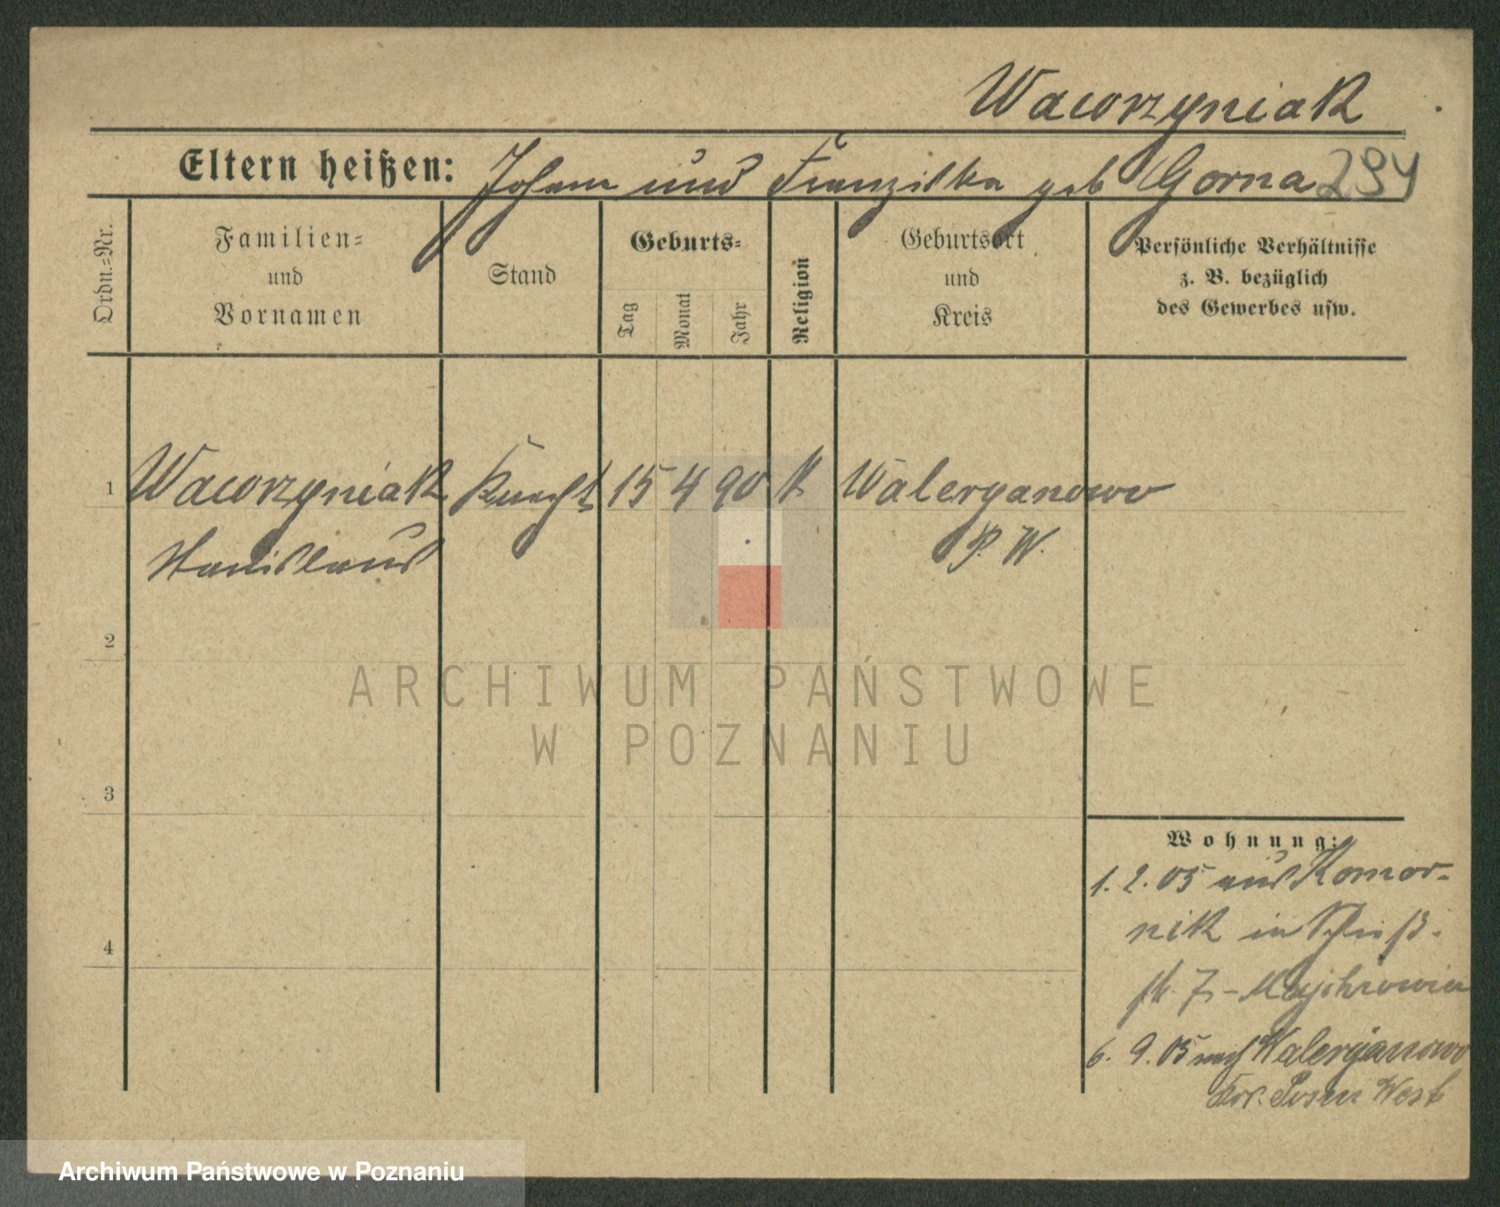 Wawrzyniak
Eltern heißen: Johann und Franziska geb Gorna 294
Ordn.=Nr.
Familien=
und
Vornamen
Stand
Geburts=
Tag
Monat
Jahr
Religion
Geburtsort
und
Kreis
Persönliche Verhältnisse
z. B. bezüglich
des Gewerbes usw.
1 Wawrzyniak Knecht 15 4 90 k Waleryanowo
Stanislaus P. W.
2
3
4
Wohnung:
1. 2. 05 aus Komor-
nik in
6. 9. 05 nach Waleryanowo
Kr. Posen West
ARCHIWUM PAŃSTWOWE
W POZNANIU
Archiwum Państwowe w Poznaniu